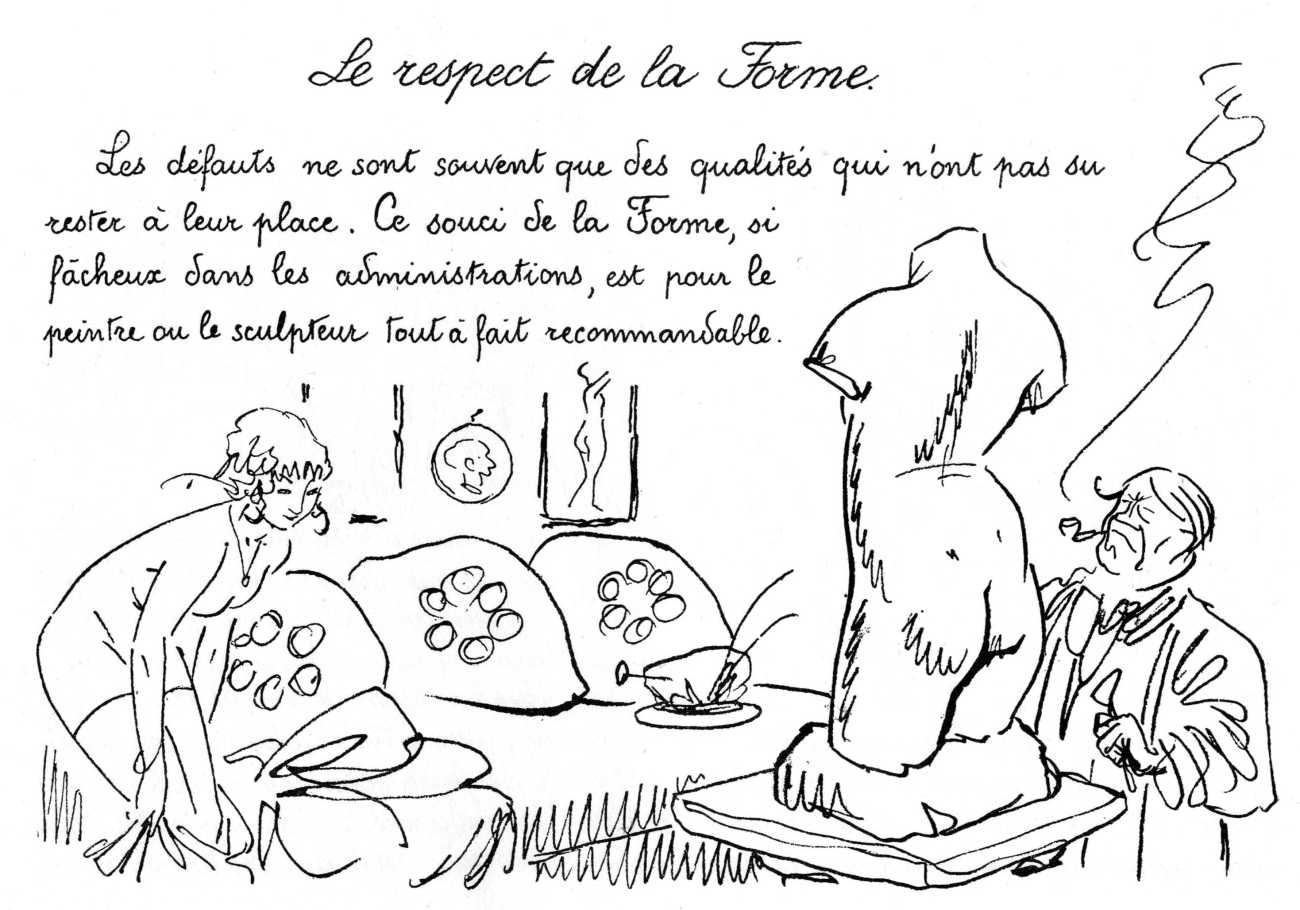 Le respect de la Forme.
Les défauts ne sont souvent que des qualités qui n'ont pas su
rester à leur place. Ce souci de la Forme, si
fâcheux dans les administrations, est pour le
peintre ou le sculpteur tout à fait recommandable.